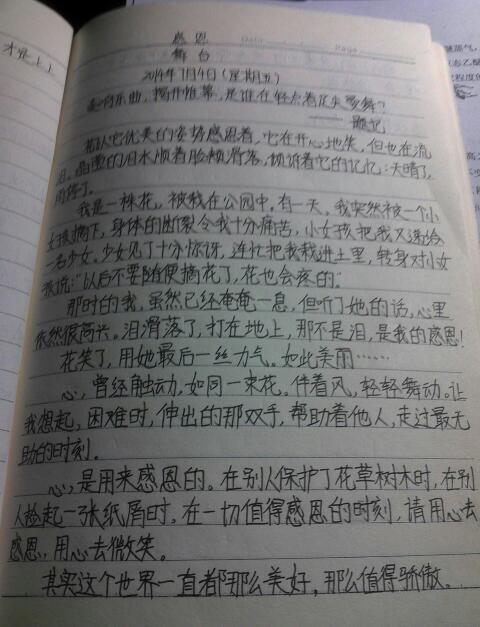 才是上上
感恩
舞台
Date Page
2014年7月4日(星期五)
奏响乐曲,揭开帷幕,是谁在轻点着足尖耍舞?
——题记
花以它优美的姿势感恩着,它在开心地笑,但也在流
泪,晶莹的泪水顺着脸颊滑落,倾诉着它的记忆:天晴了,
雨停了。
我是一株花,被栽在公园中。有一天,我突然被一个小
女孩摘下,身体的断裂令我十分痛苦,小女孩把我又递给
一名少女,少女见了十分惊讶,连忙把我栽进土里,转身对小女
孩说:“以后不要随便摘花了,花也会疼的。”
那时的我,虽然已经奄奄一息,但听了她的话,心里
依然很高兴。泪滑落了,打在地上,那不是泪,是我的感恩!
花笑了,用她最后一丝力气。如此美丽……
心,曾经触动,如同一束花。伴着风,轻轻舞动。让
我想起,困难时,伸出的那双手,帮助着他人,走过最无
助的时刻。
心,是用来感恩的。在别人保护了花草树木时,在别
人捡起一张纸屑时,在一切值得感恩的时刻,请用心去
感恩,用心去微笑。
其实这个世界一直都那么美好,那么值得骄傲。